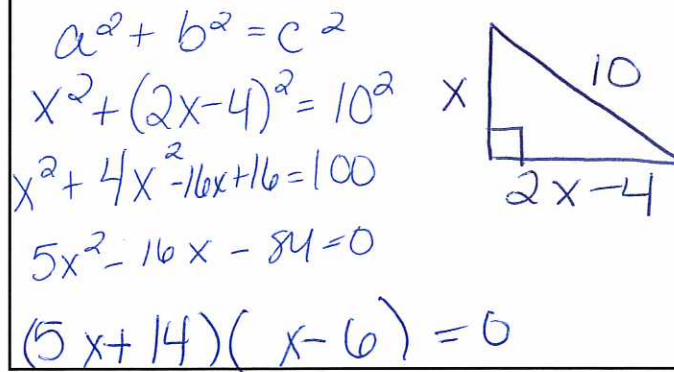 a² + b² = c²
x² + (2x-4)² = 10²
x² + 4x² -16x+16 = 100
5x² - 16x - 84 = 0
(5x + 14)(x - 6) = 0
x
10
2x-4